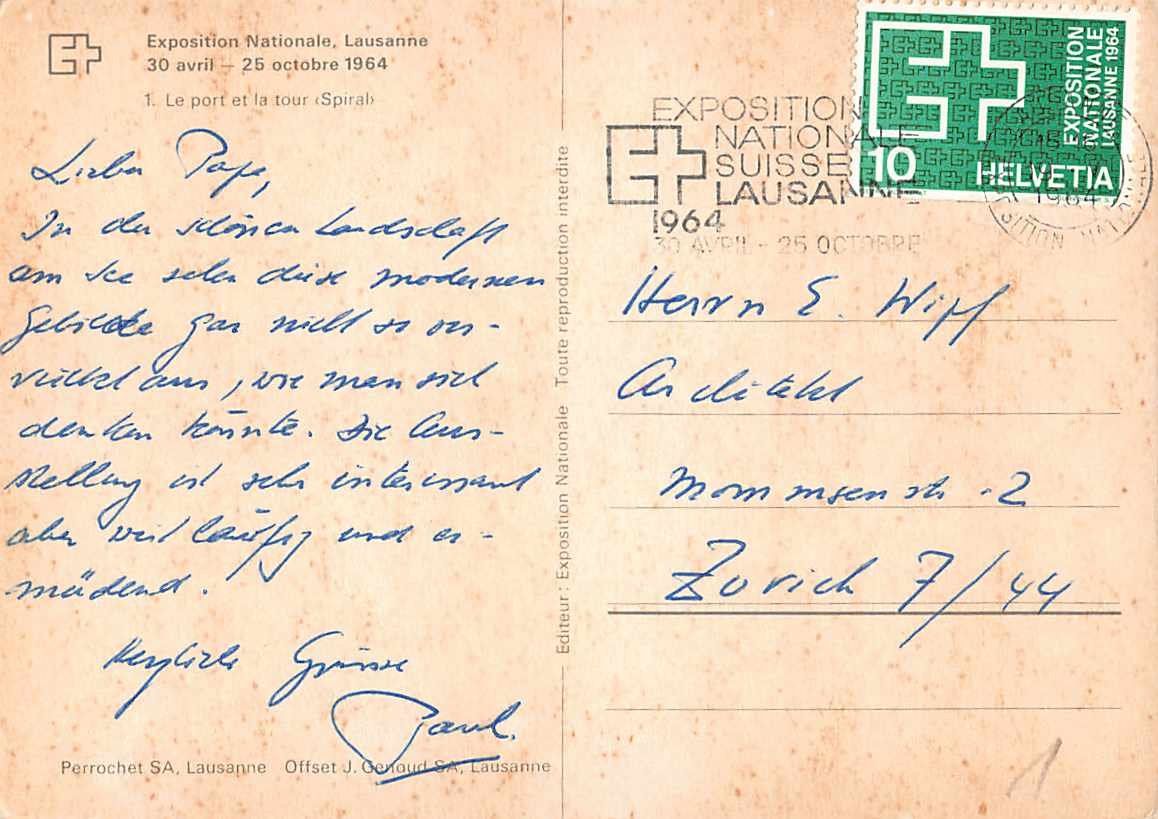 Exposition Nationale, Lausanne
30 avril – 25 octobre 1964
1. Le port et la tour ‹Spiral›
Lieber Papa,
In der schönen Landschaft
am See sehen diese modernen
Gebilde gar nicht so ver-
rückt aus, wie man sich
denken könnte. Die Aus-
stellung ist sehr interessant
aber weitläufig und er-
müdend.
Herzliche Grüsse
Paul.
Perrochet SA, Lausanne Offset J. Genoud SA, Lausanne
Editeur: Exposition Nationale Toute reproduction interdite
EXPOSITION
NATIONALE
SUISSE
LAUSANNE
1964
30 AVRIL - 25 OCTOBRE
EXPOSITION
NATIONALE
LAUSANNE 1964
10 HELVETIA
1964
Herrn E. Wipf
Architekt
Mommsenstr. 2
Zürich 7/44
1